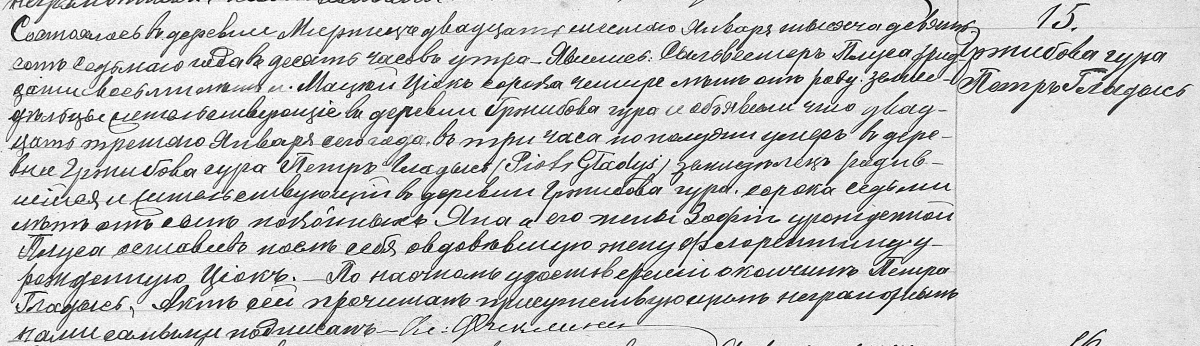 15.
Гржибова гура
Петръ Гладысь
Состоялось въ деревни Миржецъ двадцать шестаго Января тысяча девять-
сотъ седьмаго года въ десять часовъ утра – Явились: Сильвестеръ Плуса трид-
цати восьми лѣтъ и Мацѣй Ціокъ сорока четыре лѣтъ отъ роду, земле-
дѣльцы жительствующіе въ деревни Гржибова гура и объявили что двад-
цать третьяго Января сего года, въ три часа по полудни умеръ въ дере-
вне Гржибова гура Петръ Гладысь (Piotr Gładyś) земледѣлецъ родив-
шійся и жительствующій въ деревни Гржибова гура, сорока седьми
лѣтъ отъ роду сынъ покойныхъ Яна и его жены Зофіи урожденной
Плуса оставивъ послѣ себя овдовѣвшую жену Флорентину у-
рожденную Ціокъ. – По настномъ удостовереніи о кончинѣ Петра
Гладысь, Актъ сей прочитанъ присутствующимъ неграмотнымъ
нами самыми подписанъ –